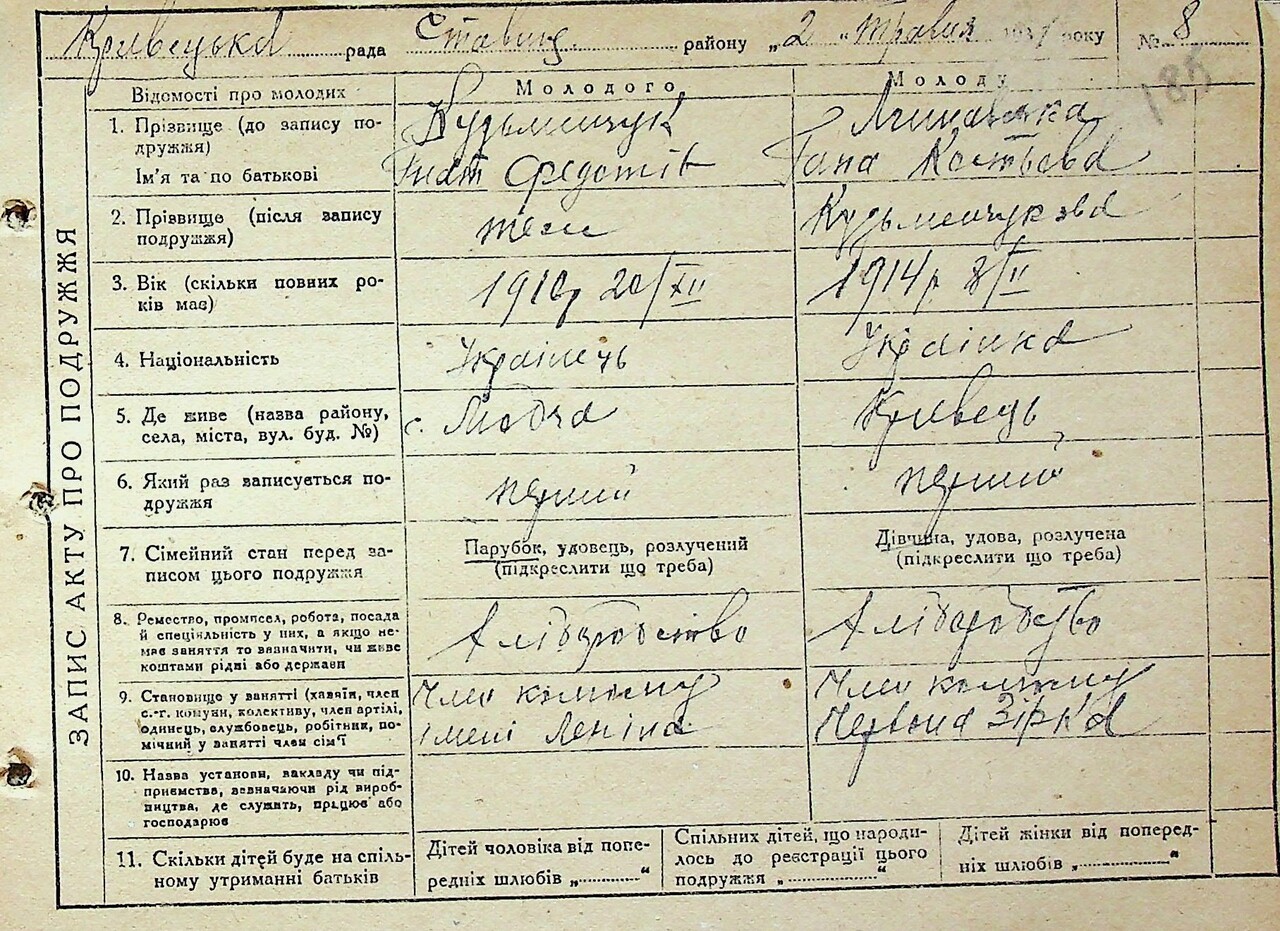 Кривецька рада Ставищ. району „2 “ травня 1931 року № 8
185
Відомості про молодих Молодого Молоду
1. Прізвище (до запису по- Кудьменчук
дружжя)
Ім'я та по батькові Гнат Федотів Гана Костьова
2. Прізвище (після запису Кудьменчукова
подружжя)
3. Вік (скільки повних ро- 1910р 20/XII 1914р 8/II
ків має)
4. Національність Українець Українка
5. Де живе (назва району, с. Кривець
села, міста, вул. буд. №)
6. Який раз записується по- перший перший
дружжя
7. Сімейний стан перед за- Парубок, удовець, розлучений Дівчина, удова, розлучена
писом цього подружжя (підкреслити що треба) (підкреслити що треба)
8. Ремество, промисел, робота, посада Хліборобство Хліборобство
й спеціяльність у них, а якщо не-
має заняття то вазначити, чи живе
коштами рідні або держави
9. Становище у занятті (хазяїн, член Член колгоспу Член колгоспу
с.-г. комуни, колективу, член артілі, імені Леніна Червона Зірка
одинець, службовець, робітник, по-
мічний у занятті член сім'ї
10. Назва установи, закладу чи під-
приємства, зазначаючи рід вироб-
ництва, де служить, працює або
господарює
11. Скільки дітей буде на спіль- Дітей чоловіка від попе- Спільних дітей, що народи- Дітей жінки від поперед-
ному утриманні батьків редніх шлюбів „ “ лось до реєстрації цього ніх шлюбів „ “
подружжя „ “
ЗАПИС АКТУ ПРО ПОДРУЖЖЯ